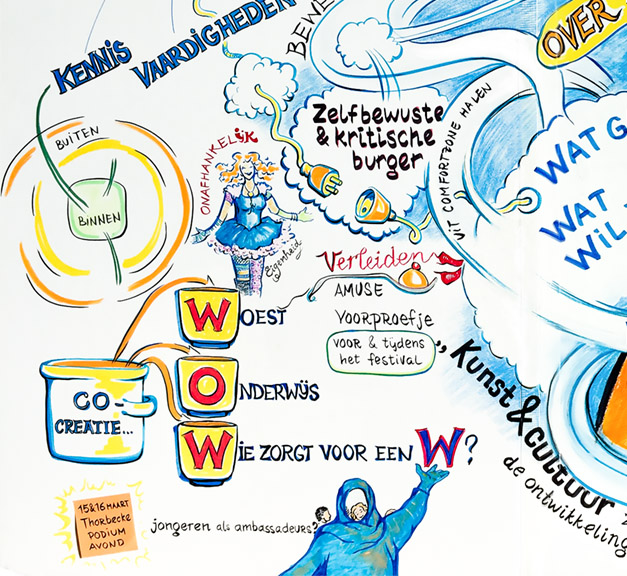 KENNIS
VAARDIGHEDEN
OVER
BUITEN
BINNEN
ONAFHANKELIJK
Eigenheid
Zelfbewuste
& kritische
burger
UIT COMFORTZONE HALEN
WAT
WAT
WIL
Verleiden
AMUSE
VOORPROEFJE
VOOR & TIJDENS
het festival
"
WOEST
ONDERWIJS
WIE ZORGT VOOR EEN W?
CO-
CREATIE...
Kunst & cultuur
de ontwikkeling
15 & 16 MAART
Thorbecke
PODIUM
AVOND
jongeren als ambassadeurs